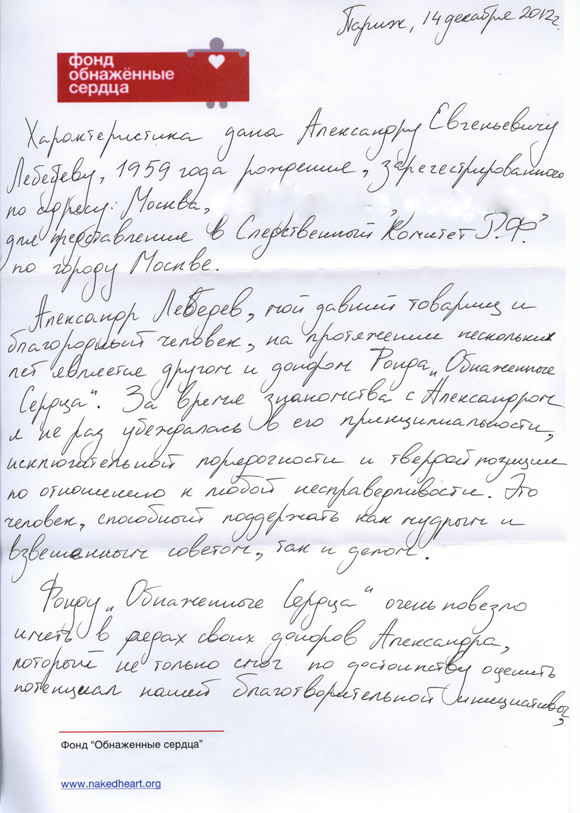 Париж, 14 декабря 2012г.
фонд
обнажённые
сердца
Характеристика дана Александру Евгеньевичу
Лебедеву, 1959 года рождения, зарегестрированного
по адресу: Москва,
для представления в Следственный "Комитет Р.Ф."
по городу Москве.
Александр Лебедев, мой давний товарищ и
благородный человек, на протяжении нескольких
лет является другом и донором Фонда „Обнаженные
Сердца“. За время знакомства с Александром
я не раз убеждалась в его принципиальности,
исключительной порядочности и твердой позиции
по отношению к любой несправедливости. Это
человек, способный поддержать как мудрым и
взвешенным советом, так и делом.
Фонду „Обнаженные Сердца“ очень повезло
иметь в рядах своих доноров Александра,
который не только смог по достоинству оценить
потенциал нашей благотворительной инициативы,
Фонд "Обнаженные сердца"
www.nakedheart.org